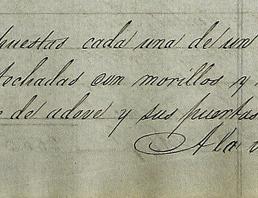 puestas cada una de un
techadas con morillos y
de adove y sus puertas
A la